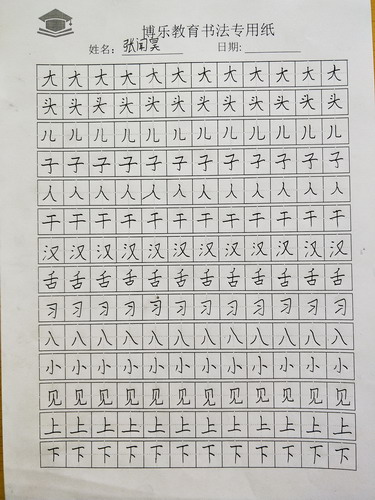 博乐教育书法专用纸
姓名: 张 日期:
大大大大大大大大大大大大
头头头头头头头头头头头头
儿儿儿儿儿儿儿儿儿儿儿儿
子子子子子子子子子子子子
人人人人人人人人人人人人
干干干干干干干干干干干干
汉汉汉汉汉汉汉汉汉汉汉汉
舌舌舌舌舌舌舌舌舌舌舌舌
习习习习习习习习习习习习
八八八八八八八八八八八八
小小小小小小小小小小小小
见见见见见见见见见见见见
上上上上上上上上上上上上
下下下下下下下下下下下下